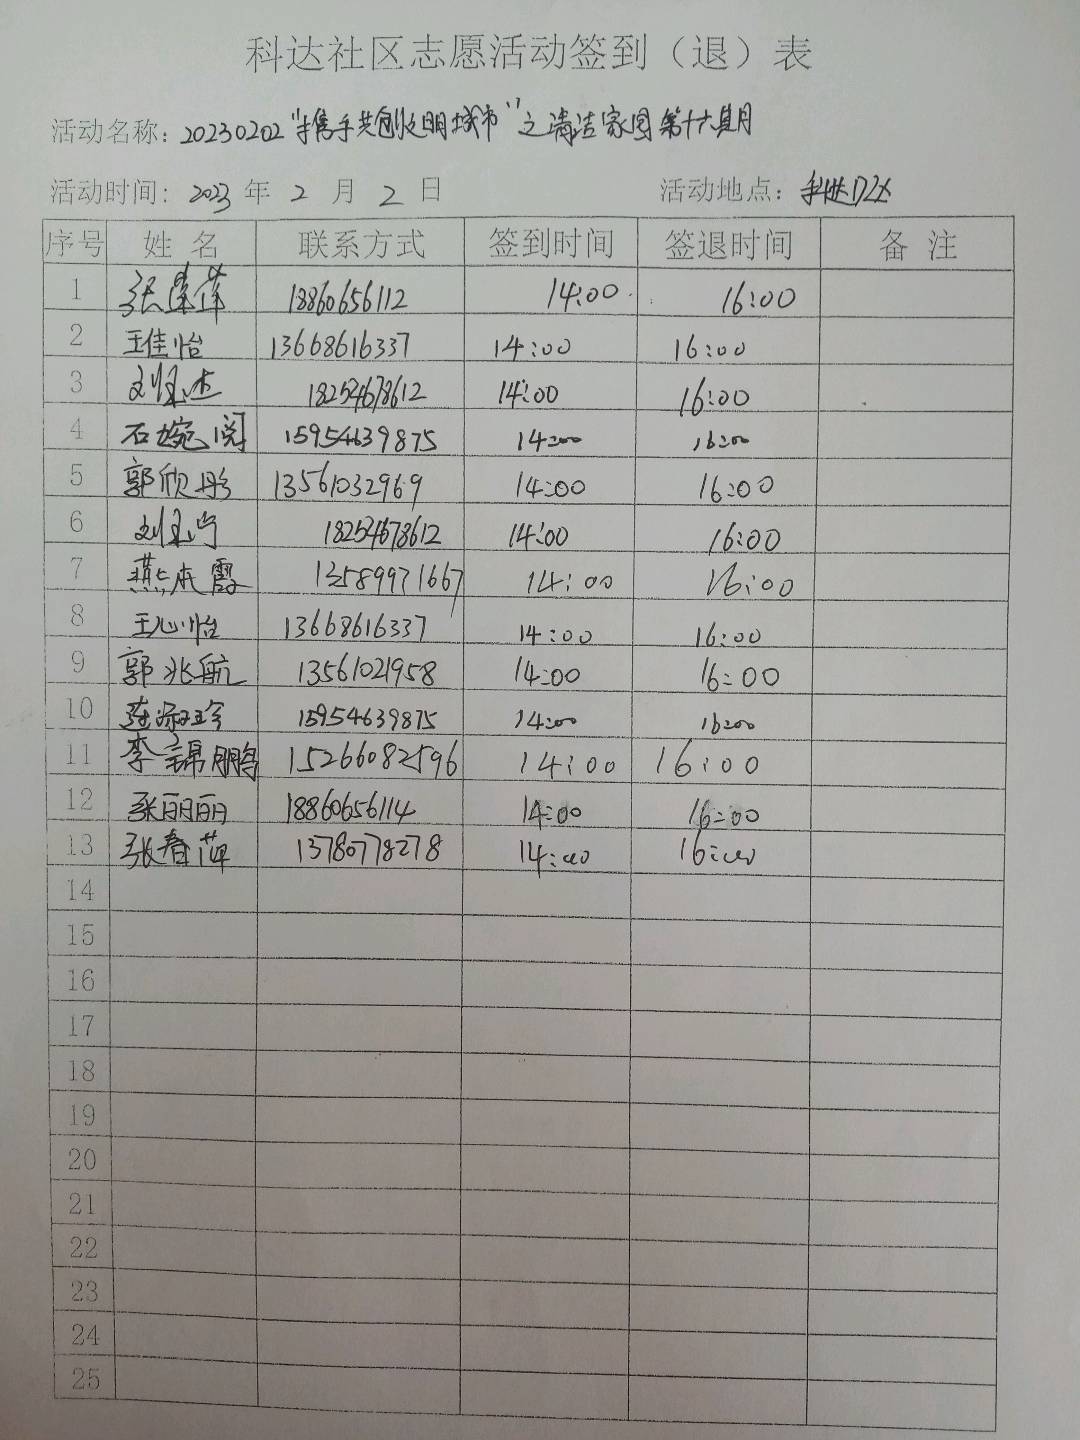 科达社区志愿活动签到（退）表
活动名称：20230202"携手共创文明城市"之清洁家园第十六期
活动时间：2023年2月2日 活动地点：科达
序号 姓名 联系方式 签到时间 签退时间 备注
1 张莲莲 18860656112 14:00 16:00
2 王佳怡 13668616337 14:00 16:00
3 刘玉杰 18254678612 14:00 16:00
4 石婉阅 15954639875 14:00 16:00
5 郭欣彤 13561032969 14:00 16:00
6 刘玉 18254678612 14:00 16:00
7 燕本霞 13589971667 14:00 16:00
8 王心怡 13668616337 14:00 16:00
9 郭兆航 13561021958 14:00 16:00
10 15954639875 14:00 16:00
11 李锦鹏 15266082596 14:00 16:00
12 张丽丽 18860656114 14:00 16:00
13 张春萍 13780778278 14:00 16:00
14
15
16
17
18
19
20
21
22
23
24
25